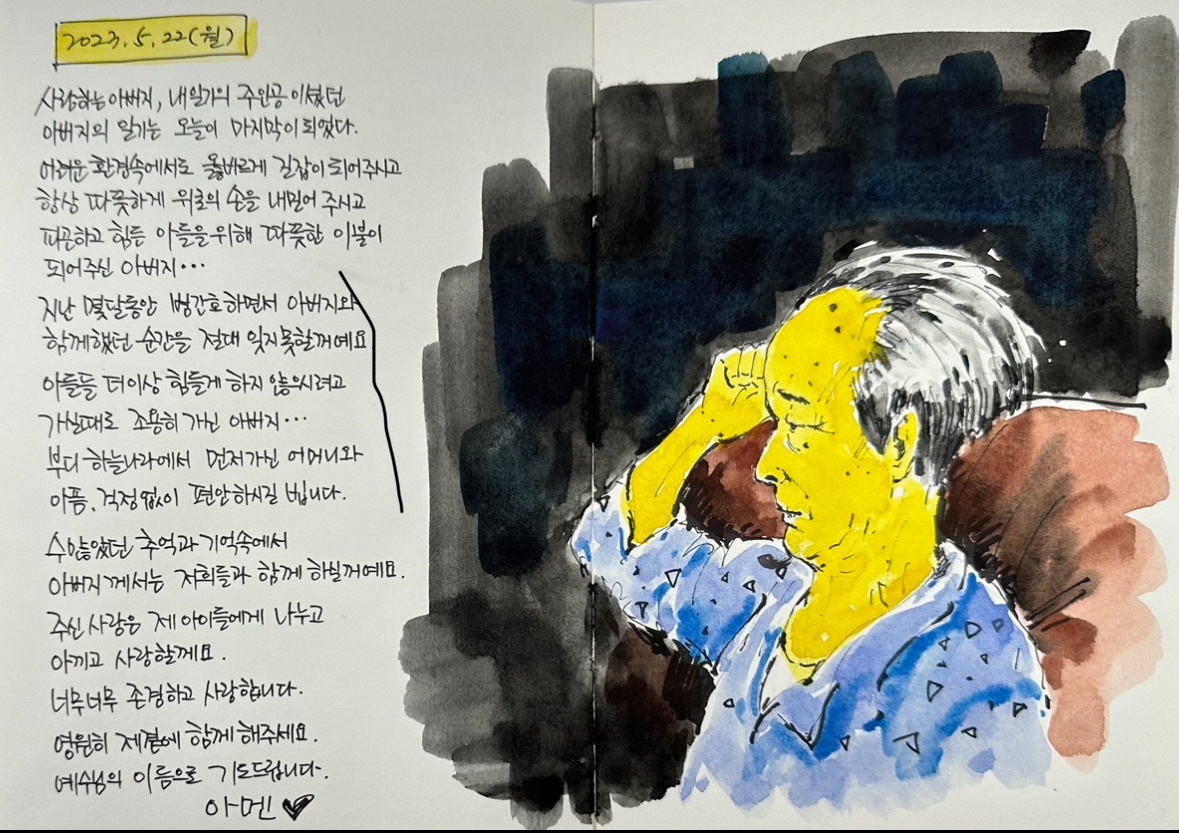 2023. 5. 22 (월)
사랑하는 아버지, 내 일기의 주인공이셨던
아버지의 일기는 오늘이 마지막이 되었다.
어려운 환경속에서도 올바르게 길잡이 되어주시고
항상 따뜻하게 위로의 손을 내밀어 주시고
피곤하고 힘든 아들을 위해 따뜻한 이불이
되어주신 아버지...
지난 몇달동안 병간호하면서 아버지와
함께했던 순간을 절대 잊지못할꺼예요
아들들 더이상 힘들게 하지 않으시려고
가실때도 조용히 가신 아버지...
부디 하늘나라에서 먼저가신 어머니와
아픔, 걱정없이 편안하시길 빕니다.
수많았던 추억과 기억속에서
아버지께서는 저희들과 함께 하실꺼예요.
주신 사랑은 제 아이들에게 나누고
아끼고 사랑할께요.
너무너무 존경하고 사랑합니다.
영원히 제곁에 함께 해주세요.
예수님의 이름으로 기도드립니다.
아멘 ♥